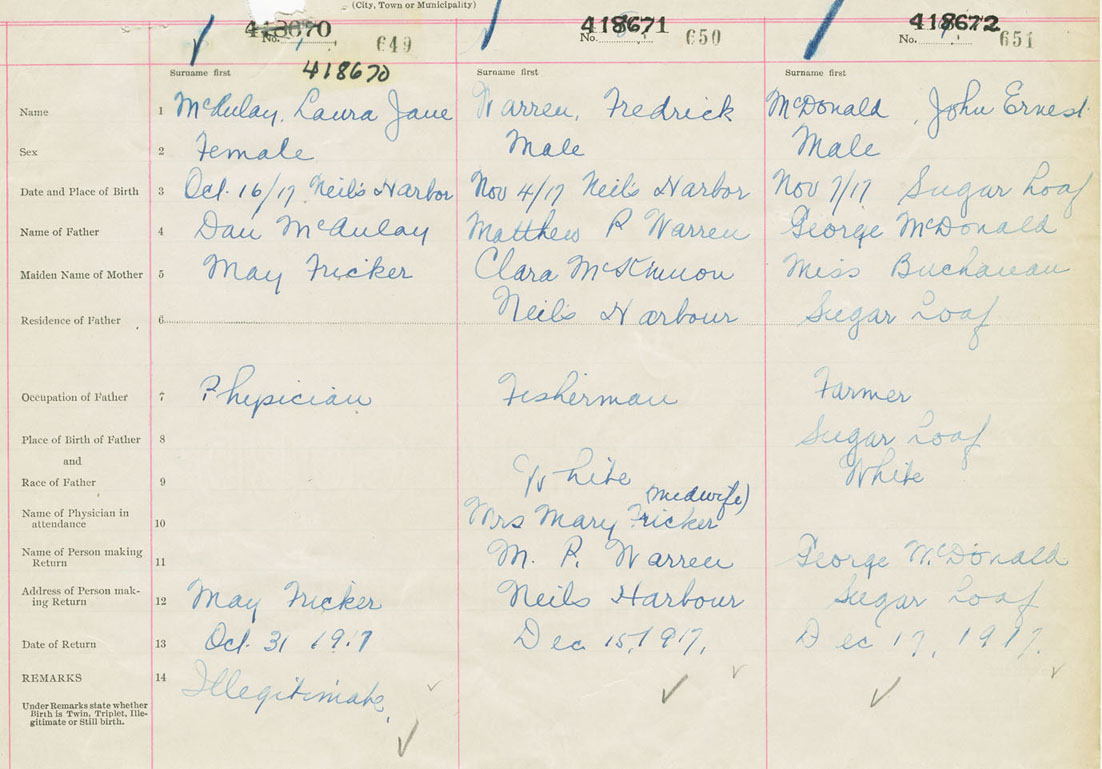 (City, Town or Municipality)
418670 418671 418672
No. 649 No. 650 No. 651
418670
Surname first Surname first Surname first
Name 1 McAulay, Laura Jane Warren, Fredrick McDonald, John Ernest
Sex 2 Female Male Male
Date and Place of Birth 3 Oct. 16/17 Neil's Harbor Nov 4/17 Neil's Harbor Nov 7/17 Sugar Loaf
Name of Father 4 Dan McAulay Matthew P Warren George McDonald
Maiden Name of Mother 5 May Fricker Clara McKinnon Miss Buchanan
Residence of Father 6 Neil's Harbour Sugar Loaf
Occupation of Father 7 Physician Fisherman Farmer
Place of Birth of Father 8 Sugar Loaf
and
Race of Father 9 White White
Name of Physician in
attendance 10 Mrs Mary Fricker (midwife)
Name of Person making
Return 11 M. P. Warren George McDonald
Address of Person mak-
ing Return 12 May Fricker Neils Harbour Sugar Loaf
Date of Return 13 Oct. 31 1917 Dec 15, 1917, Dec 17, 1917.
REMARKS 14 Illegitimate
Under Remarks state whether
Birth is Twin, Triplet, Ille-
gitimate or Still birth.